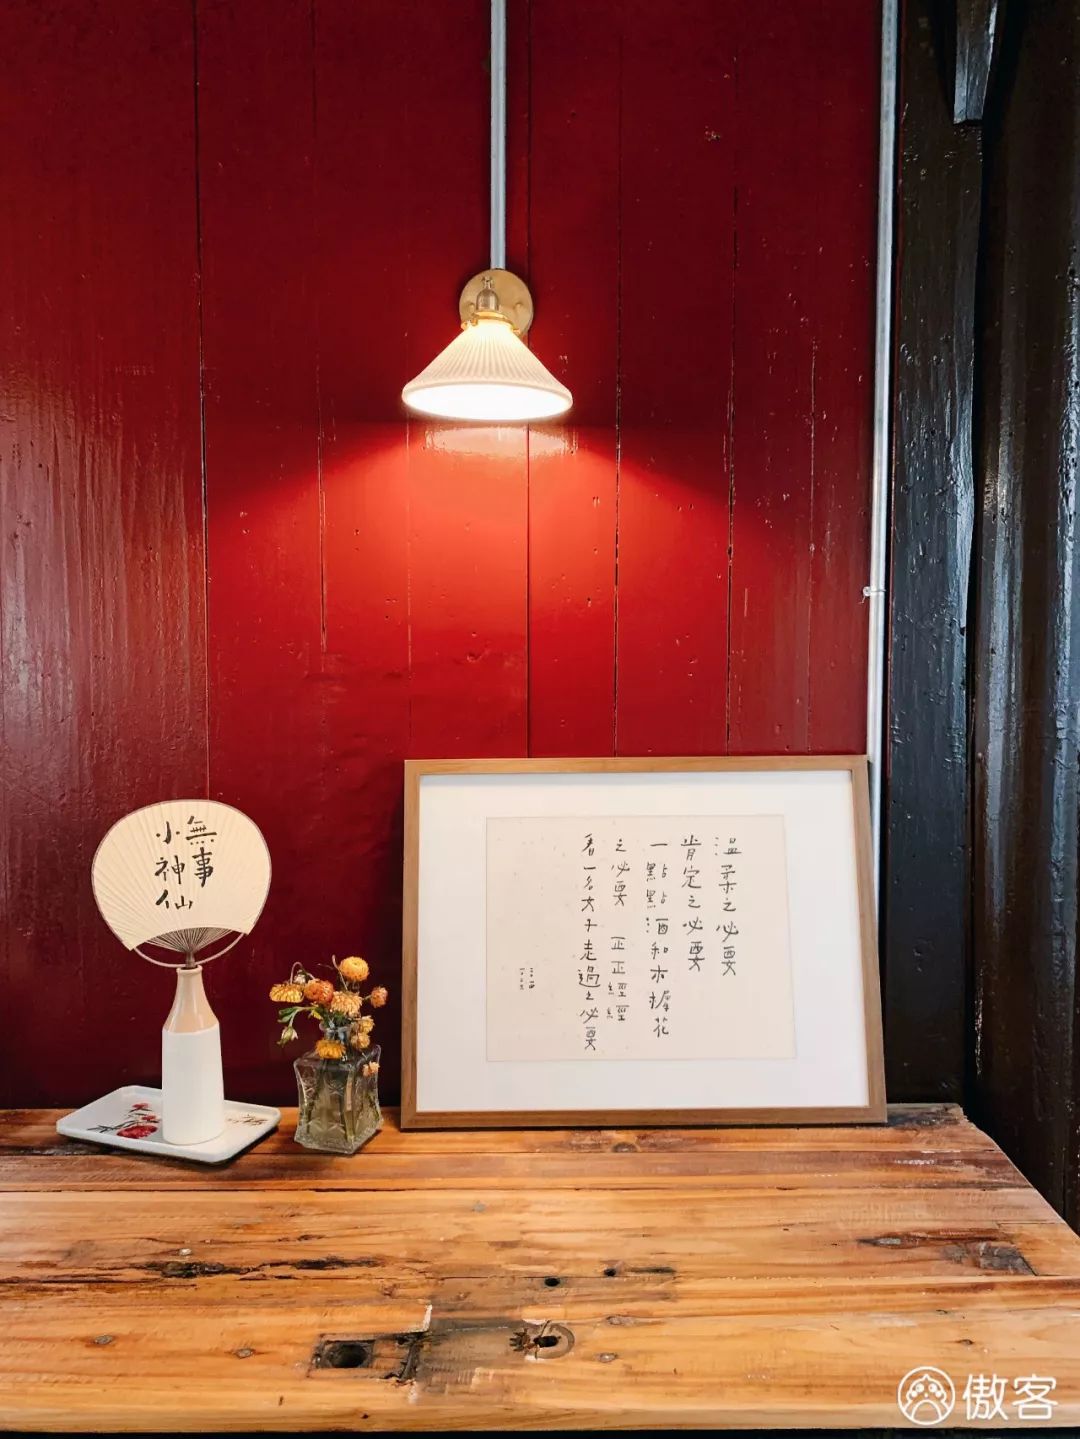 無事
小神仙
溫柔之必要
肯定之必要
一點點酒和木樨花
之必要 正正經經
看一名女子走過之必要
傲客